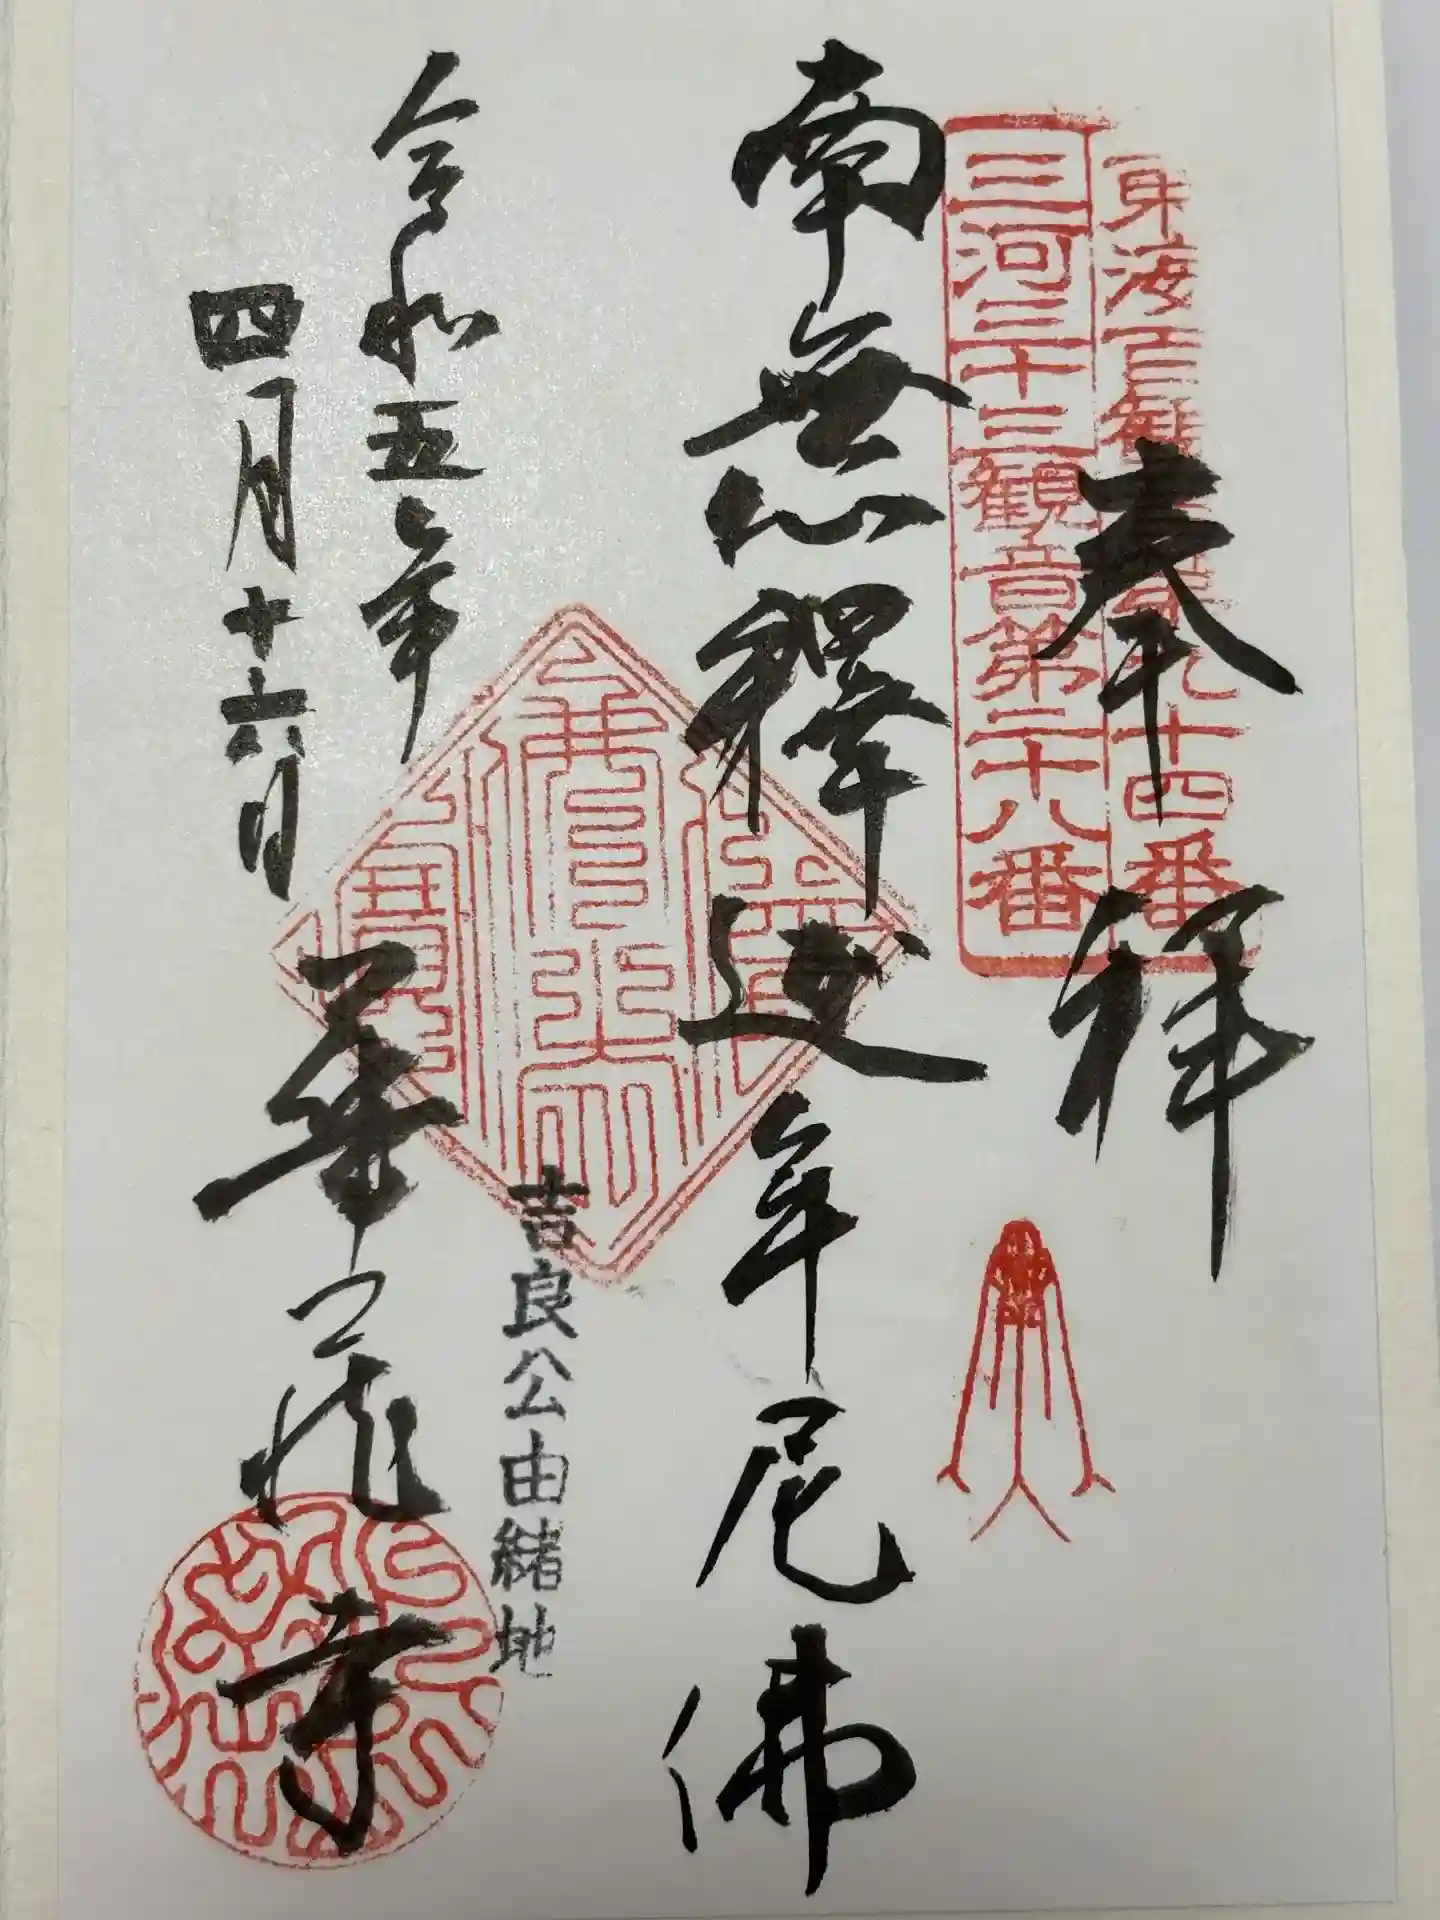 奉拝
東海百観音
九十四番
三河三十三観音第二十八番
南無釋迦牟尼佛
佛法僧寶
吉良公由緒地
令和五年
四月十六日
華蔵寺